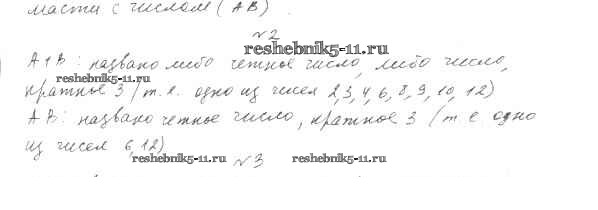 масти с числом (AB)
№2
reshebnik5-11.ru
A+B: названо либо четное число, либо число,
reshebnik5-11.ru
кратное 3 (т.е. одно из чисел 2,3,4,6,8,9,10,12)
AB: названо четное число, кратное 3 (т е одно
из чисел 6,12)
reshebnik5-11.ru reshebnik5-11.ru
№3